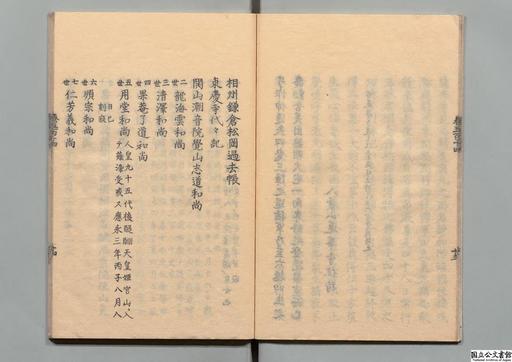 相州鎌倉松岡過去帳
東慶寺代々記
開山潮音院覺山志道和尚
二世 龍海雲和尚
三世 清澤和尚
四世 果菴了道和尚
五世 用堂和尚 人皇九十五代後醍醐天皇姫宮山ニ入テ薙染受戒ス應永三年丙子八月八日已刻寂
六世 順宗和尚
七世 仁芳義和尚
国立公文書館
National Archives of Japan